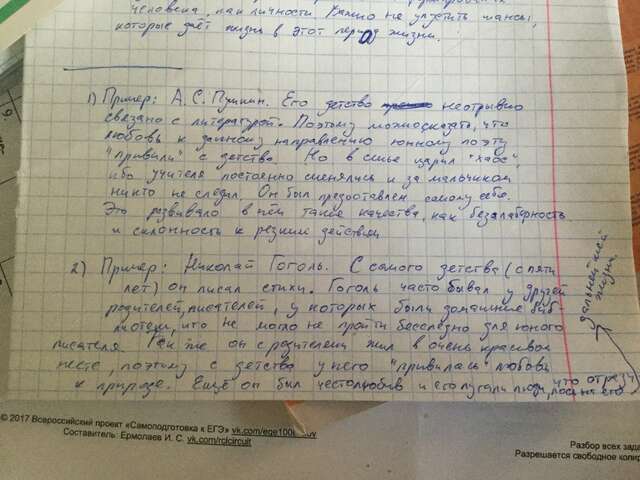 человека, как личности. Важно не упустить шансы,
которые даёт жизнь в этот период жизни.
1) Пример: А.С. Пушкин. Его детство неотрывно
связано с литературой. Поэтому можно сказать, что
любовь к данному направлению юнному поэту
"привили" с детства. Но в семье царил "хаос",
ибо учителя постоянно сменялись и за мальчиком
никто не следил. Он был предоставлен самому себе.
Это развивало в нём такие качества, как безалаберность
и склонность к резким действиям
2) Пример: Николай Гоголь. С самого детства (с пяти
лет) он писал стихи. Гоголь часто бывал у друзей
родителей, писателей, у которых были домашние биб-
лиотеки, что не могло не пройти бесследно для юного
писателя. Так же он с родителями жил в очень красивом
месте, поэтому с детства у него "привилась" любовь
к природе. Ещё он был честолюбив и его пугали люди, что отразу
дальнейшей
жизни.
© 2017 Всероссийский проект «Самоподготовка к ЕГЭ» vk.com/ege100
Составитель: Ермолаев И. С. vk.com/rclcircuit
Разбор всех зада
Разрешается свободное копир